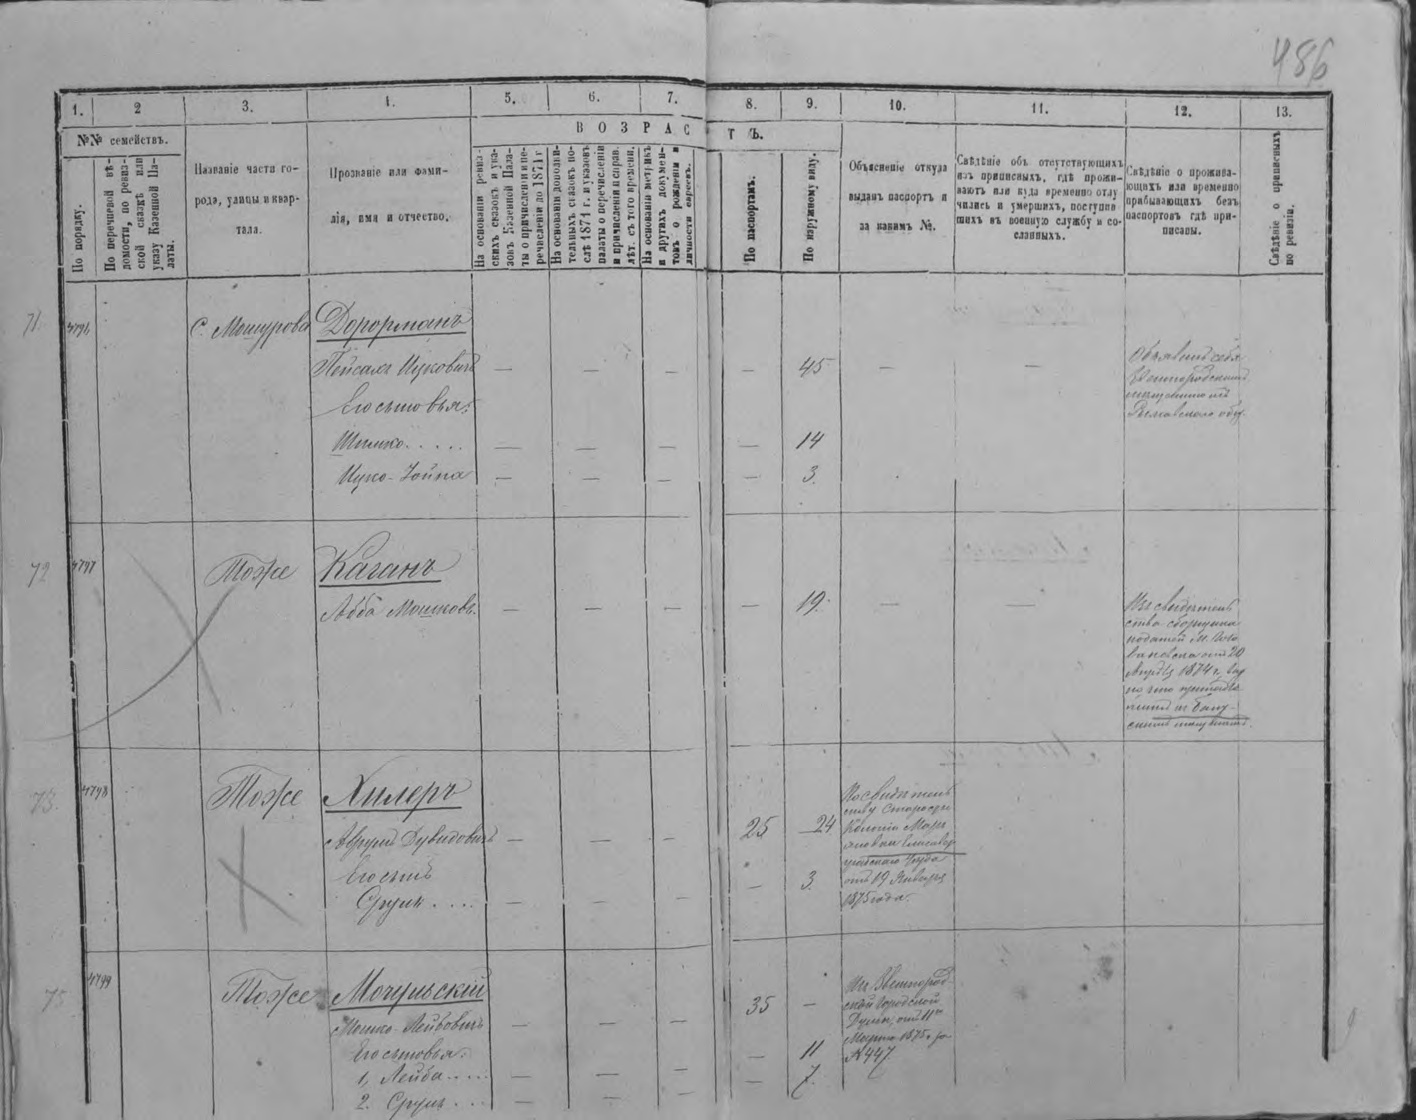 486
1.
2
3.
4.
5.
6.
7.
8.
9.
10.
11.
12.
13.
№№ семействъ.
По порядку.
По перечневой вѣ-
домости, по ревиз-
ской сказкѣ или
указу Казенной Па-
латы.
Названіе части го-
рода, улицы и квар-
тала.
Прозваніе или фами-
лія, имя и отчество.
ВОЗРАСТЪ.
На основаніи ревиз-
скихъ сказокъ и ука-
зовъ Казенной Пала-
ты о причисленіи и пе-
речисленіи до 1874 г
На основаніи дополни-
тельныхъ сказокъ по-
слѣ 1874 г. и указовъ
палаты о перечисленіи
и причисленіи и справ.
лѣт. съ того времени.
На основаніи метрикъ
и другихъ докумен-
товъ о рожденіи и
личности евреевъ.
По паспортамъ.
По наружному виду.
Объясненіе откуда
выданъ паспортъ и
за какимъ №.
Свѣдѣніе объ отсутствующихъ
изъ приписныхъ, гдѣ прожи-
ваютъ или куда временно отлу
чились и умершихъ, поступив
шихъ въ военную службу и со-
сланныхъ.
Свѣдѣніе о прожива-
ющихъ или временно
прибывающихъ безъ
паспортовъ гдѣ при-
писаны.
Свѣдѣніе о приписныхъ
по ревизіи.
71.
4796
С. Мошурова
Дорорманъ
Пейсахъ Ицковичъ
— — — — 45 — —
Объявилъ себя
Звенигородскимъ
мѣщаниномъ
Его сыновья:
Шлиомко . . . . .
— — — — 14
Ицко-Іойна
— — — — 3.
72
4797
Тоже
Каганъ
Абба Мошковъ.
— — — — 19. — —
Изъ свидѣтель
ства сборщика
податей М.
отъ 20
1874 г.
73.
4798
Тоже
Хилеръ
Аврумъ Дувидовичъ
— — — 25 — 24
По свидѣтель
ству Старосты
Колоніи
Елисавет
градскаго Уѣзда
отъ 19 Января
1875 года.
Его сынъ
Срулъ . . . .
— — — — 3.
75
4799
Тоже
Могульскій
Мошко-Лейбовичъ
— — — 35 —
Изъ Звенигород
ской Городской
Думы, отъ 11го
Марта 1875 г. за
№ 447.
Его сыновья:
1, Лейба . . . . .
— — — — 11
2. Срулъ . . .
— — — — 7.